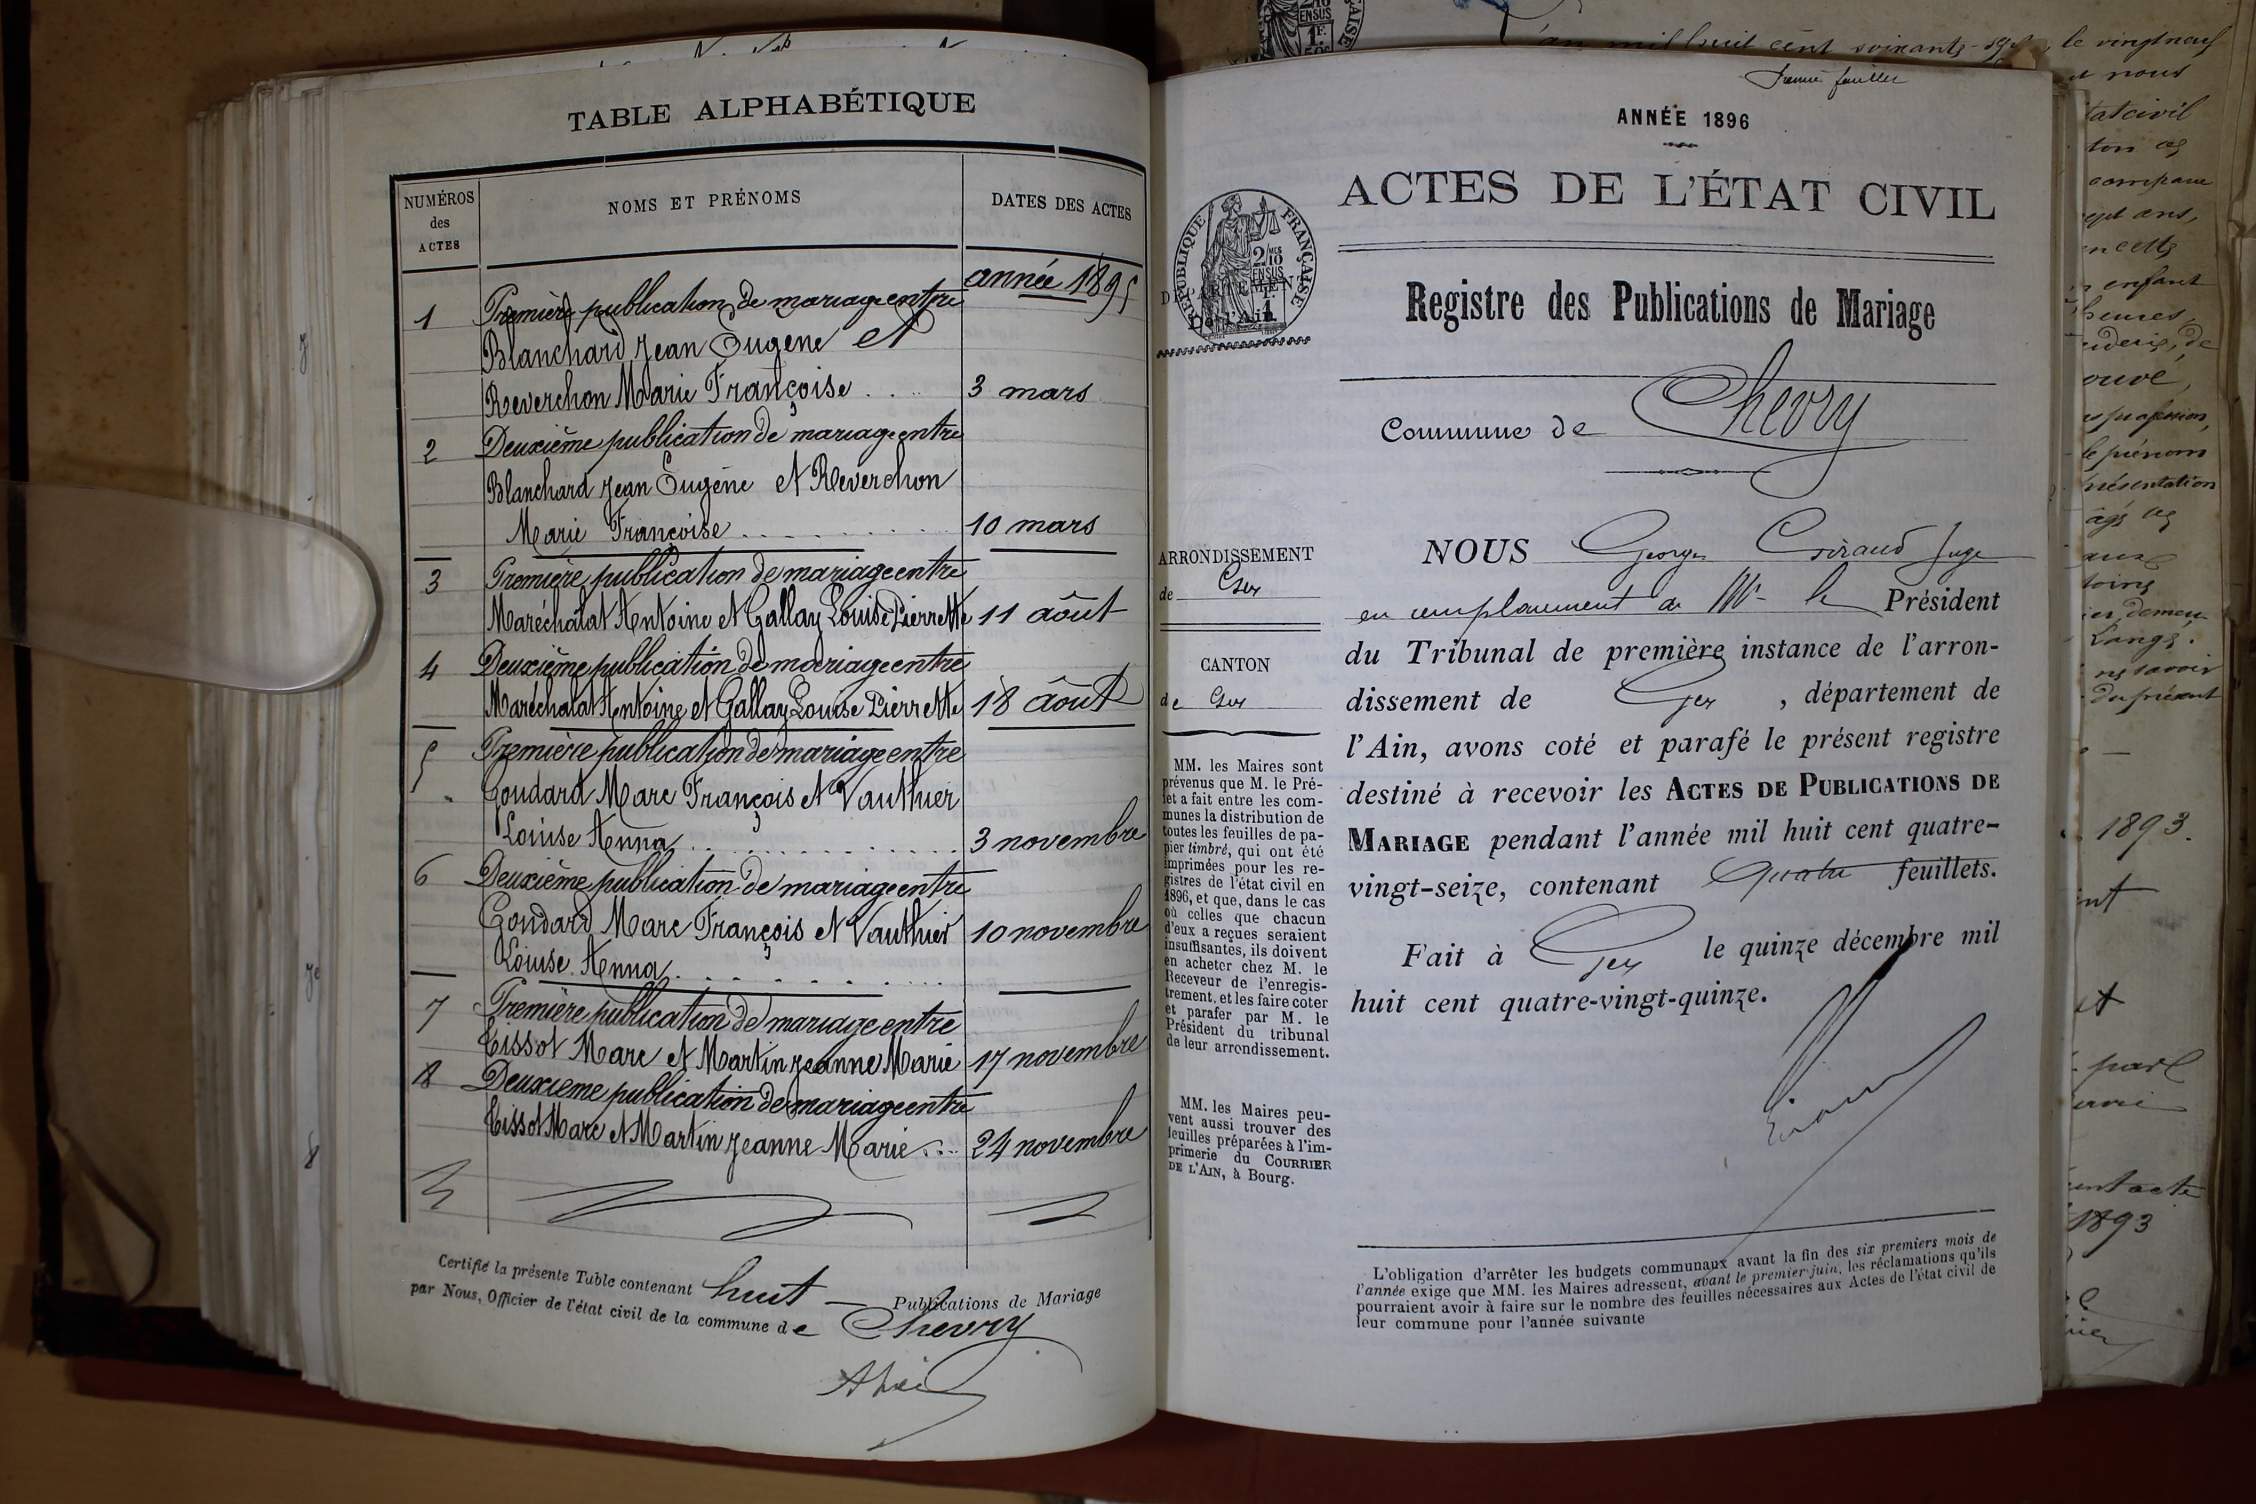 TABLE ALPHABÉTIQUE
NUMÉROS
des
ACTES
NOMS ET PRÉNOMS
DATES DES ACTES
année 1895
1 Première publication de mariage entre
Blanchard Jean Eugène et
Reverchon Marie Françoise .... 3 mars
2 Deuxième publication de mariage entre
Blanchard Jean Eugène et Reverchon
Marie Françoise .......... 10 mars
3 Première publication de mariage entre
Maréchalat Antoine et Gallay Louise Pierrette 11 août
4 Deuxième publication de mariage entre
Maréchalat Antoine et Gallay Louise Pierrette 18 août
5 Première publication de mariage entre
Goudard Marc François et Vauthier
Louise Anna .............. 3 novembre
6 Deuxième publication de mariage entre
Goudard Marc François et Vauthier 10 novembre
Louise Anna ..........
7 Première publication de mariage entre
Tissot Marc et Martin Jeanne Marie 17 novembre
8 Deuxième publication de mariage entre
Tissot Marc et Martin Jeanne Marie .... 24 novembre
Certifié la présente Table contenant huit — Publications de Mariage
par Nous, Officier de l'état civil de la commune de Chevry
ANNÉE 1896
ACTES DE L'ÉTAT CIVIL
RÉPUBLIQUE FRANÇAISE
2/10
EN SUS
DÉPARTEMENT
De l'Ain
Registre des Publications de Mariage
Commune de Chevry
ARRONDISSEMENT
de Gex
CANTON
de Gex
MM. les Maires sont
prévenus que M. le Pré-
fet a fait entre les com-
munes la distribution de
toutes les feuilles de pa-
pier timbré, qui ont été
imprimées pour les re-
gistres de l'état civil en
1896, et que, dans le cas
où celles que chacun
d'eux a reçues seraient
insuffisantes, ils doivent
en acheter chez M. le
Receveur de l'enregis-
trement, et les faire coter
et parafer par M. le
Président du tribunal
de leur arrondissement.
MM. les Maires peu-
vent aussi trouver des
feuilles préparées à l'im-
primerie du COURRIER
DE L'AIN, à Bourg.
NOUS Georges Giraud Juge
en remplacement de Mr le Président
du Tribunal de première instance de l'arron-
dissement de Gex, département de
l'Ain, avons coté et parafé le présent registre
destiné à recevoir les ACTES DE PUBLICATIONS DE
MARIAGE pendant l'année mil huit cent quatre-
vingt-seize, contenant quatre feuillets.
Fait à Gex le quinze décembre mil
huit cent quatre-vingt-quinze.
L'obligation d'arrêter les budgets communaux avant la fin des six premiers mois de
l'année exige que MM. les Maires adressent, avant le premier juin, les réclamations qu'ils
pourraient avoir à faire sur le nombre des feuilles nécessaires aux Actes de l'état civil de
leur commune pour l'année suivante
le vingt neuf
nous
1893.
1893